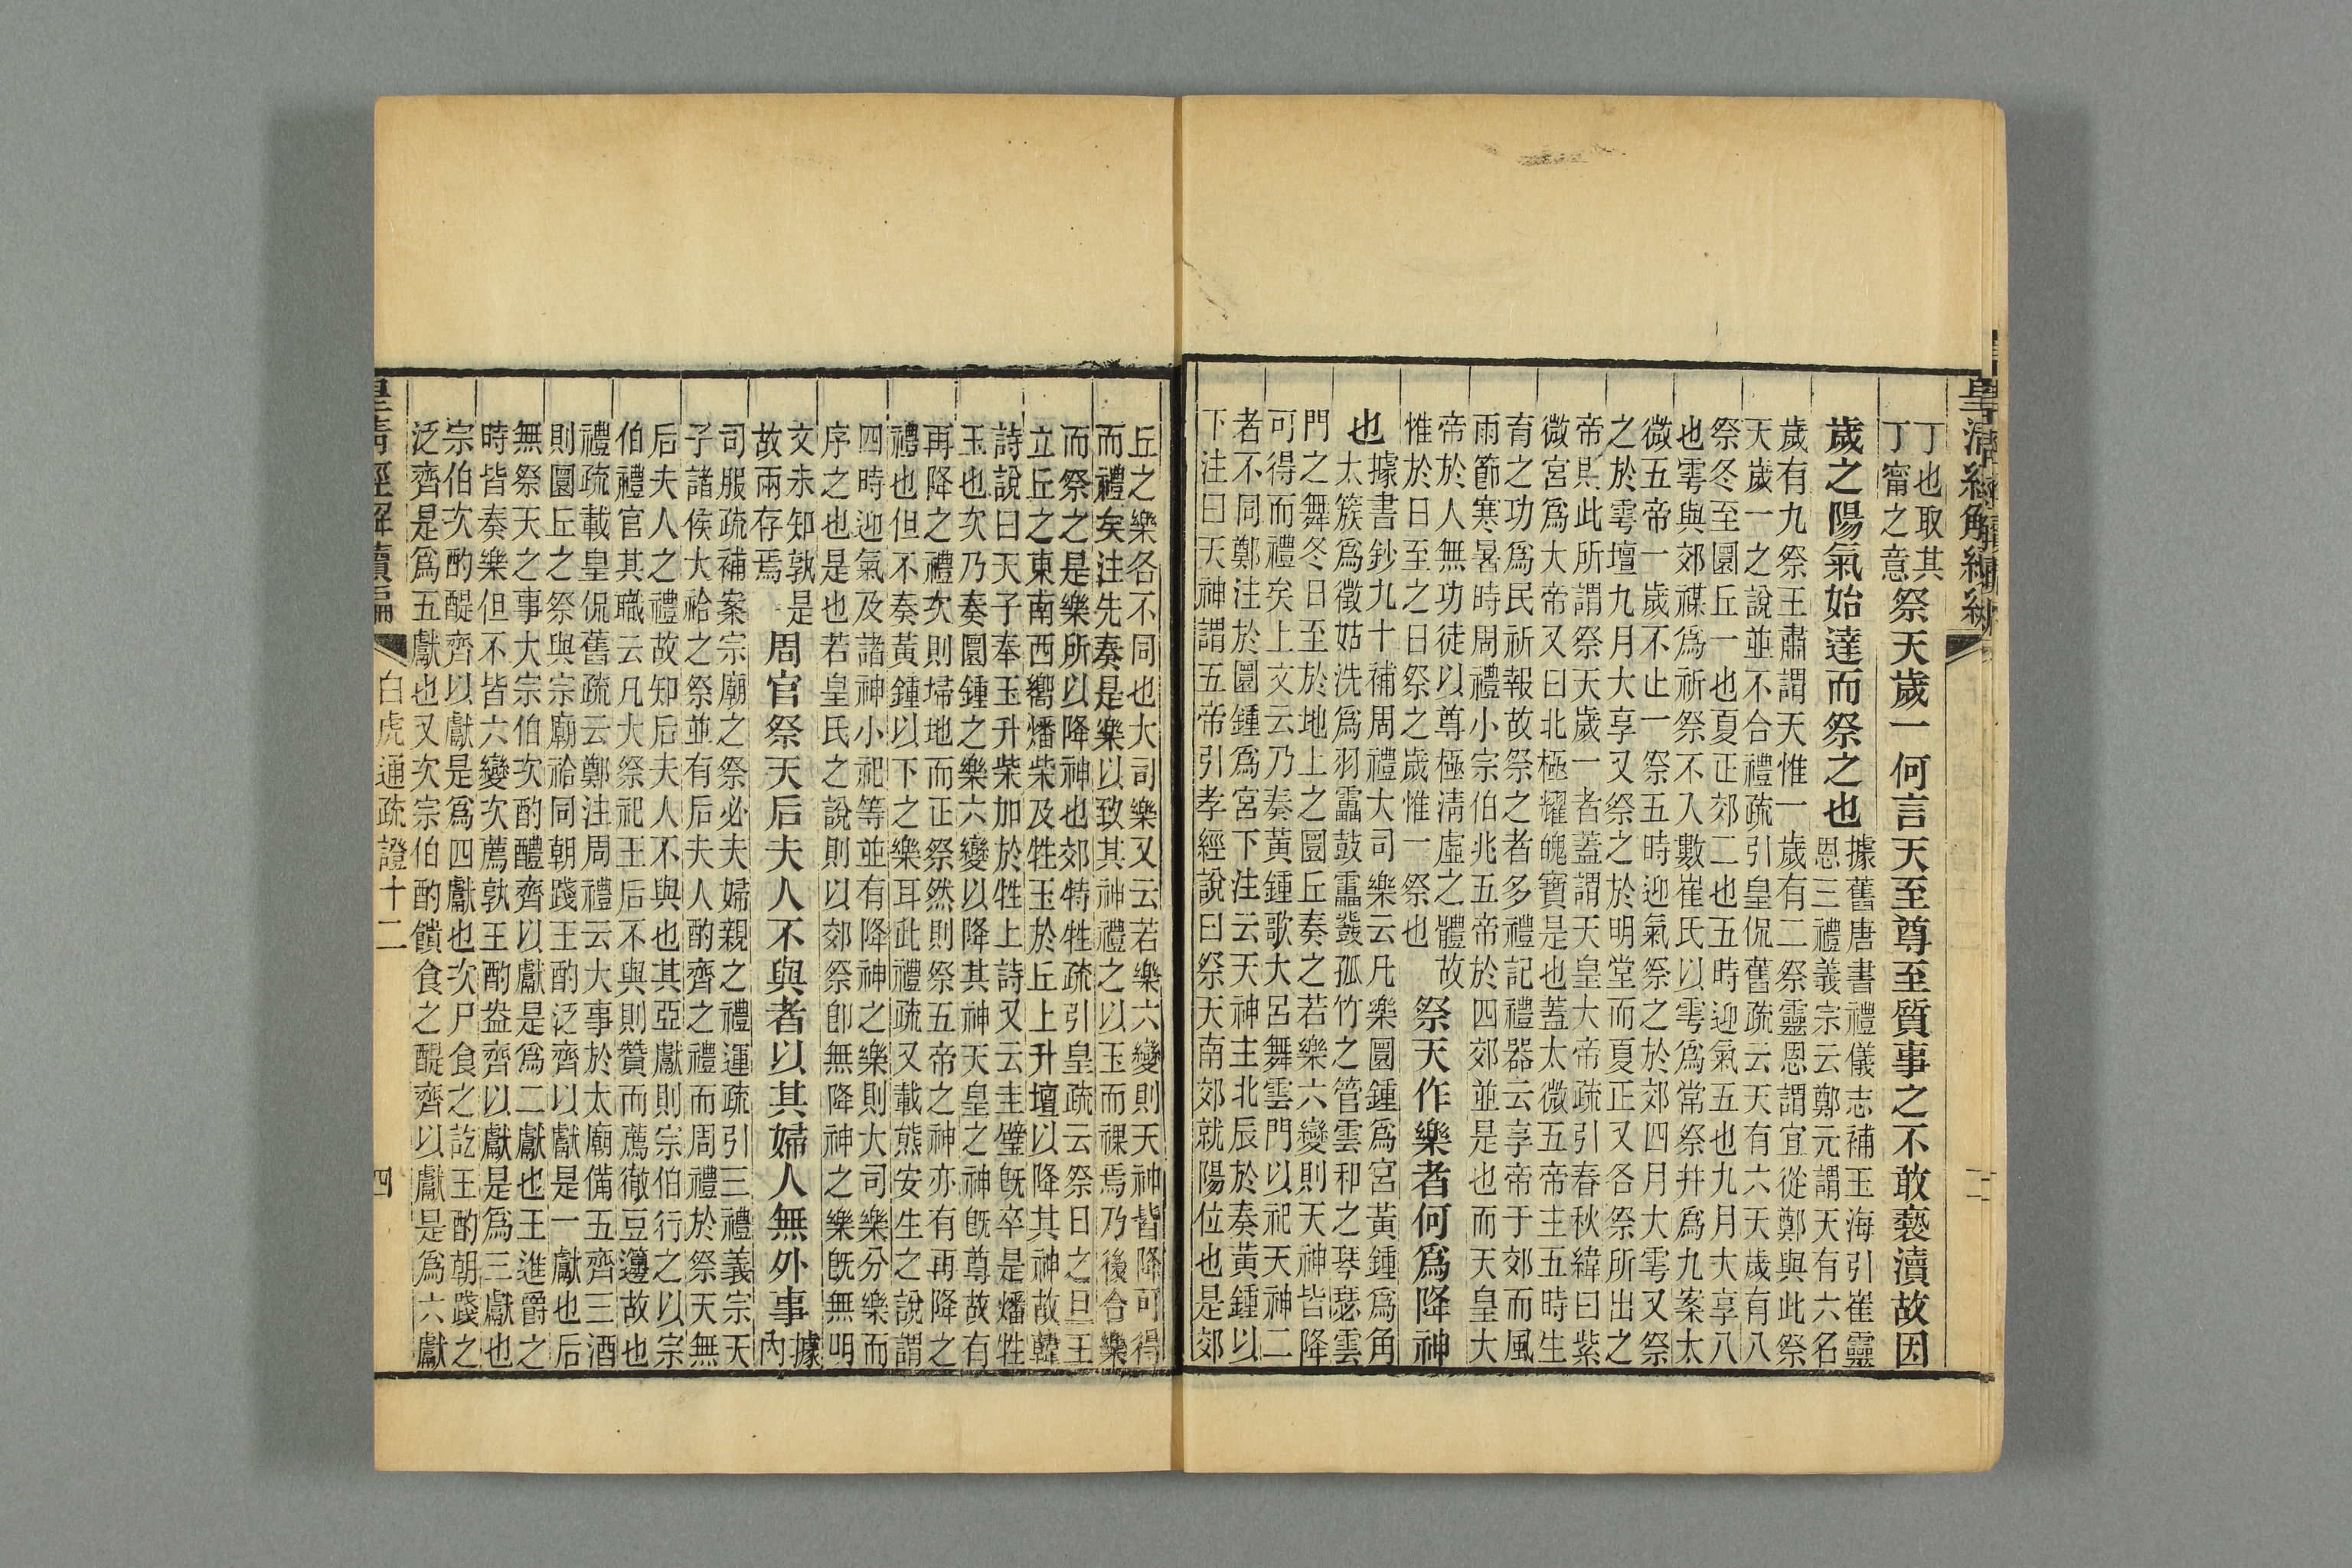 皇清經解續編
丁也取其
丁甯之意
祭天歲一何言天至尊至質事之不敢褻瀆故因
歲之陽氣始達而祭之也
據舊唐書禮儀志補玉海引崔靈
恩三禮義宗云鄭元謂天有六名
歲有九祭王肅謂天惟一歲有二祭靈恩謂宜從鄭與此祭
天歲一之說並不合禮疏引皇侃舊疏云天有六天歲有八
祭冬至圜丘一也夏正郊二也五時迎氣五也九月大享八
也雩與郊禖爲祈祭不入數崔氏以雩爲常祭幷爲九案太
微五帝一歲不止一祭五時迎氣祭之於郊四月大雩又祭
之於雩壇九月大享又祭之於明堂而夏正又各祭所出之
帝則此所謂祭天歲一者蓋謂天皇大帝疏引春秋緯曰紫
微宮爲大帝又曰北極耀魄寶是也蓋太微五帝主五時生
育之功爲民祈報故祭之者多禮記禮器云享帝于郊而風
雨節寒暑時周禮小宗伯兆五帝於四郊並是也而天皇大
帝於人無功徒以尊極淸虛之體故
惟於日至之日祭之歲惟一祭也
祭天作樂者何爲降神
也
據書鈔九十補周禮大司樂云凡樂圜鍾爲宮黃鍾爲角
太簇爲徵姑洗爲羽靁鼓靁鼗孤竹之管雲和之琴瑟雲
門之舞冬日至於地上之圜丘奏之若樂六變則天神皆降
可得而禮矣上文云乃奏黃鍾歌大呂舞雲門以祀天神二
者不同鄭注於圜鍾爲宮下注云天神主北辰於奏黃鍾以
下注曰天神謂五帝引孝經說曰祭天南郊就陽位也是郊
丘之樂各不同也大司樂又云若樂六變則天神皆降可得
而禮矣注先奏是樂以致其神禮之以玉而祼焉乃後合樂
而祭之是樂所以降神也郊特牲疏引皇疏云祭日之旦王
立丘之東南西嚮燔柴及牲玉於丘上升壇以降其神故韓
詩說曰天子奉玉升柴加於牲上詩又云圭璧旣卒是燔牲
玉也次乃奏圜鍾之樂六變以降其神天皇之神旣尊故有
再降之禮次則埽地而正祭然則祭五帝之神亦有再降之
禮也但不奏黃鍾以下之樂耳此禮疏又載熊安生之說謂
四時迎氣及諸神小祀等並有降神之樂則大司樂分樂而
序之也是也若皇氏之說則以郊祭卽無降神之樂旣無明
文未知孰是
故兩存焉
周官祭天后夫人不與者以其婦人無外事
據
內
司服疏補案宗廟之祭必夫婦親之禮運疏引三禮義宗天
子諸侯大祫之祭並有后夫人酌齊之禮而周禮於祭天無
后夫人之禮故知后夫人不與也其亞獻則宗伯行之以宗
伯禮官其職云凡大祭祀王后不與則贊而薦徹豆籩故也
禮疏載皇侃舊疏云鄭注周禮云大事於太廟備五齊三酒
則圜丘之祭與宗廟祫同朝踐王酌泛齊以獻是一獻也后
無祭天之事大宗伯次酌醴齊以獻是爲二獻也王進爵之
時皆奏樂但不皆六變次薦孰王酌盎齊以獻是爲三獻也
宗伯次酌醍齊以獻是爲四獻也次尸食之訖王酌朝踐之
泛齊是爲五獻也又次宗伯酌饋食之醍齊以獻是爲六獻
皇清經解續編
白虎通疏證十二
四